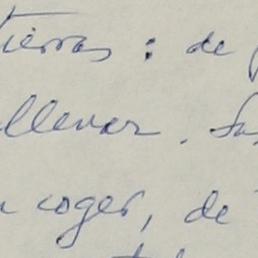 tierras : de
llevar . Su
coger, de